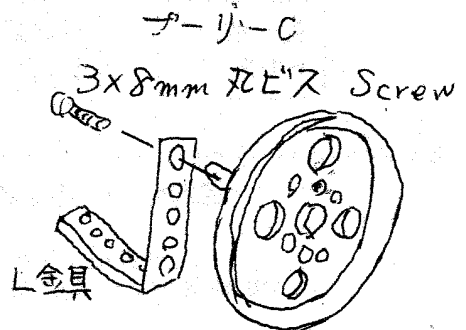 プーリーC
3×8mm 丸ビス Screw
L金具